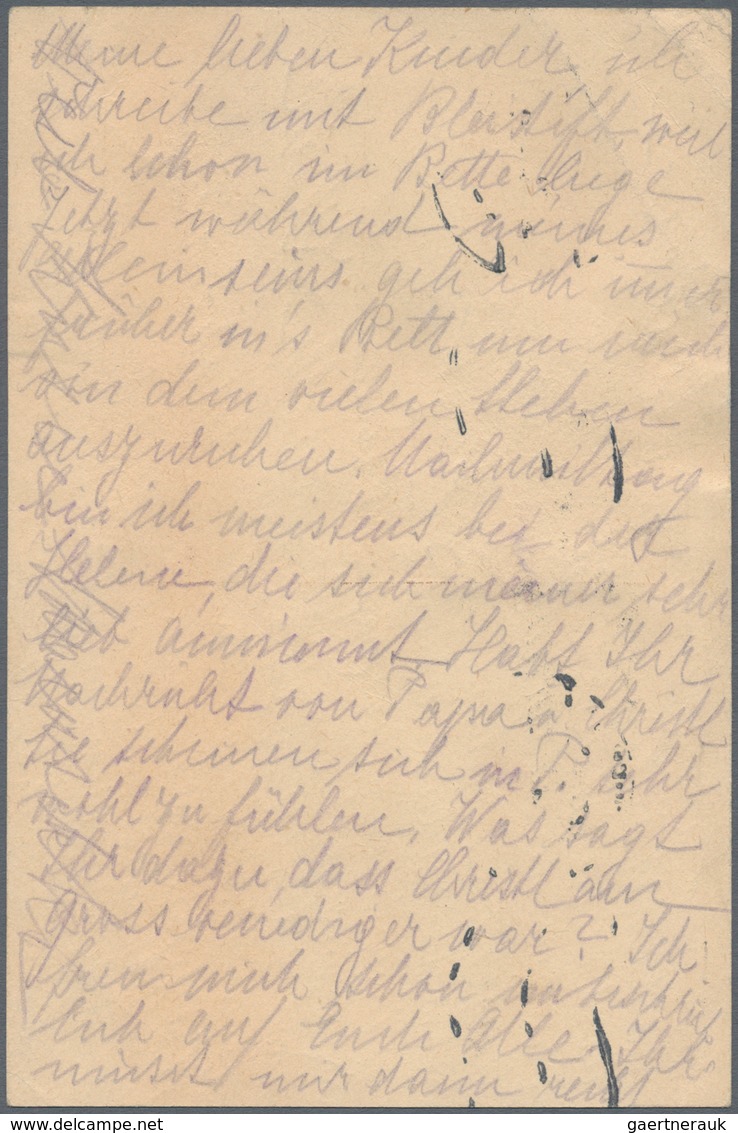 Meine lieben Kinder ich
schreibe mit Bleistift, weil
ich schon im Bette liege
Jetzt während meines
Alleinseins geh ich immer
früher in's Bett um mich
von dem vielen Stehen
auszuruhen. Nachmittag
bin ich meistens bei der
Helene, die sich meiner sehr
lieb annimmt. Habt Ihr
Nachricht von Papa u Christl
Sie scheinen sich in P. sehr
wohl zu fühlen. Was sagt
Ihr dazu, dass Christl am
Grossvenediger war? Ich
freu mich schon
Euch auf Euch Alle. Ihr
müsst mir dann recht
gaertnerauk